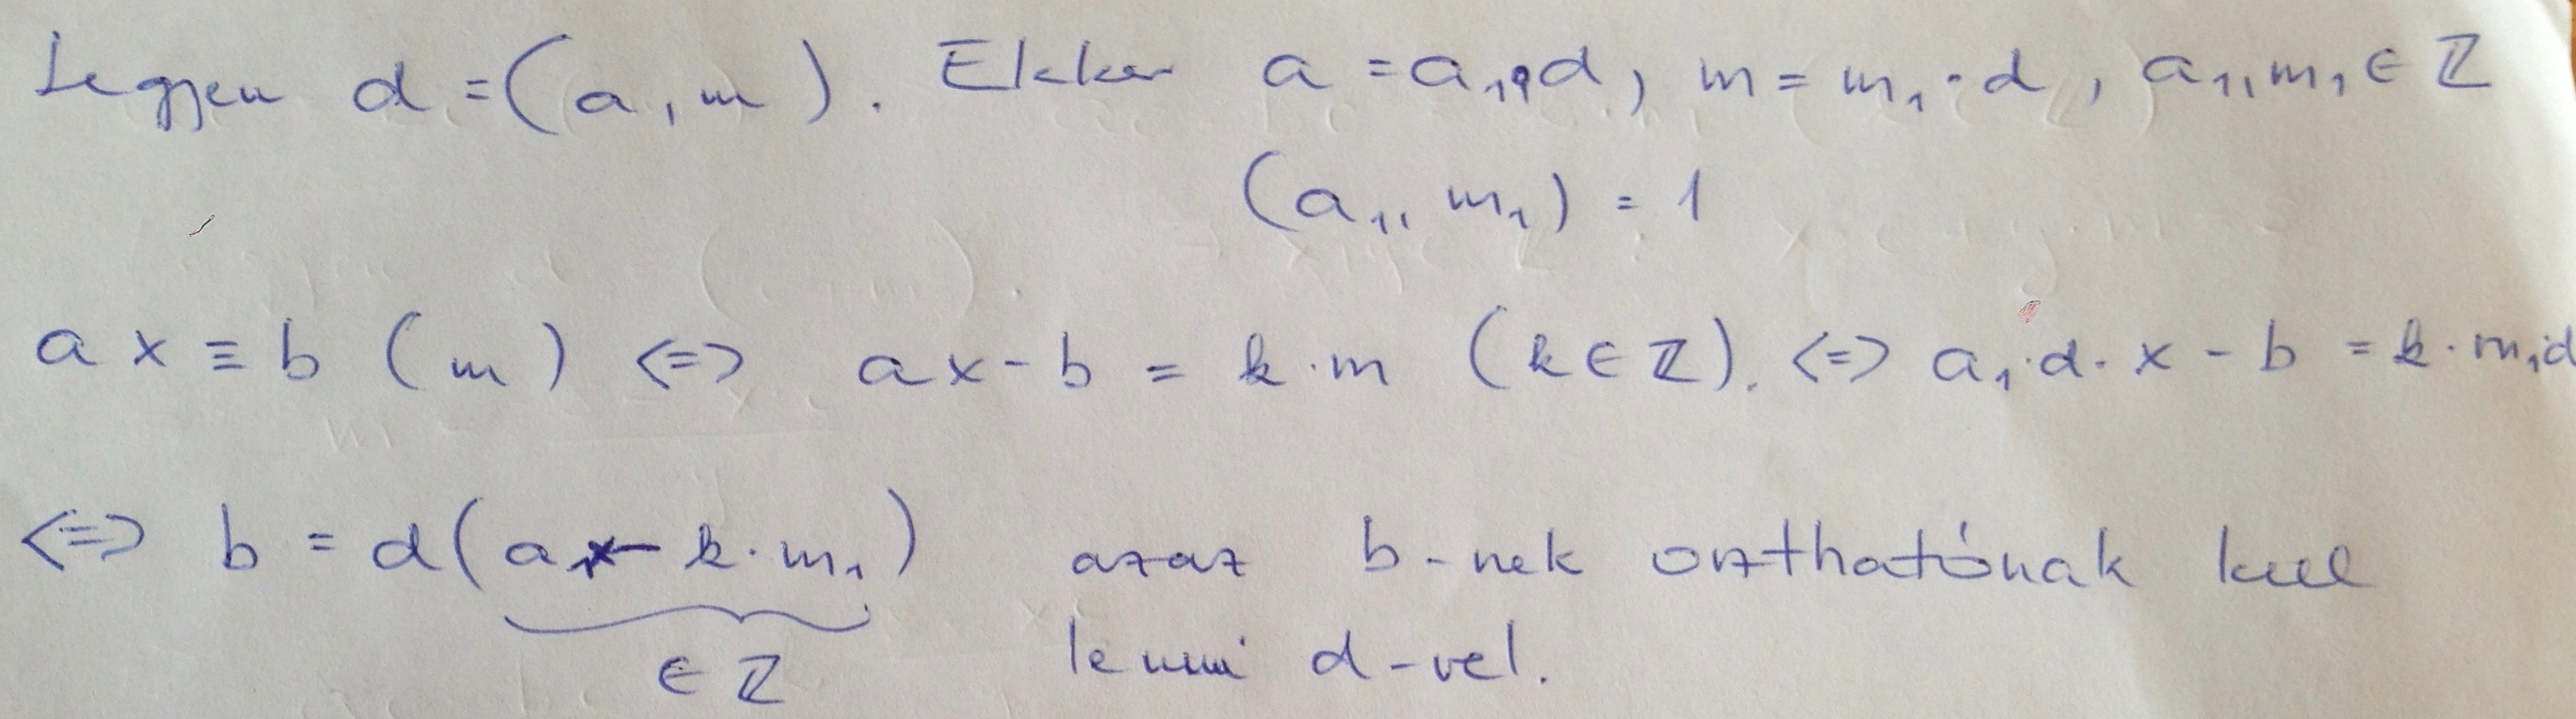 Legyen d = (a, m). Ekkor a = a₁·d, m = m₁·d, a₁, m₁ ∈ ℤ
(a₁, m₁) = 1
ax ≡ b (m) <=> ax - b = k·m (k ∈ ℤ). <=> a₁·d·x - b = k·m₁d
<=> b = d(a₁x - k·m₁) azaz b-nek oszthatónak kell
∈ ℤ lenni d-vel.